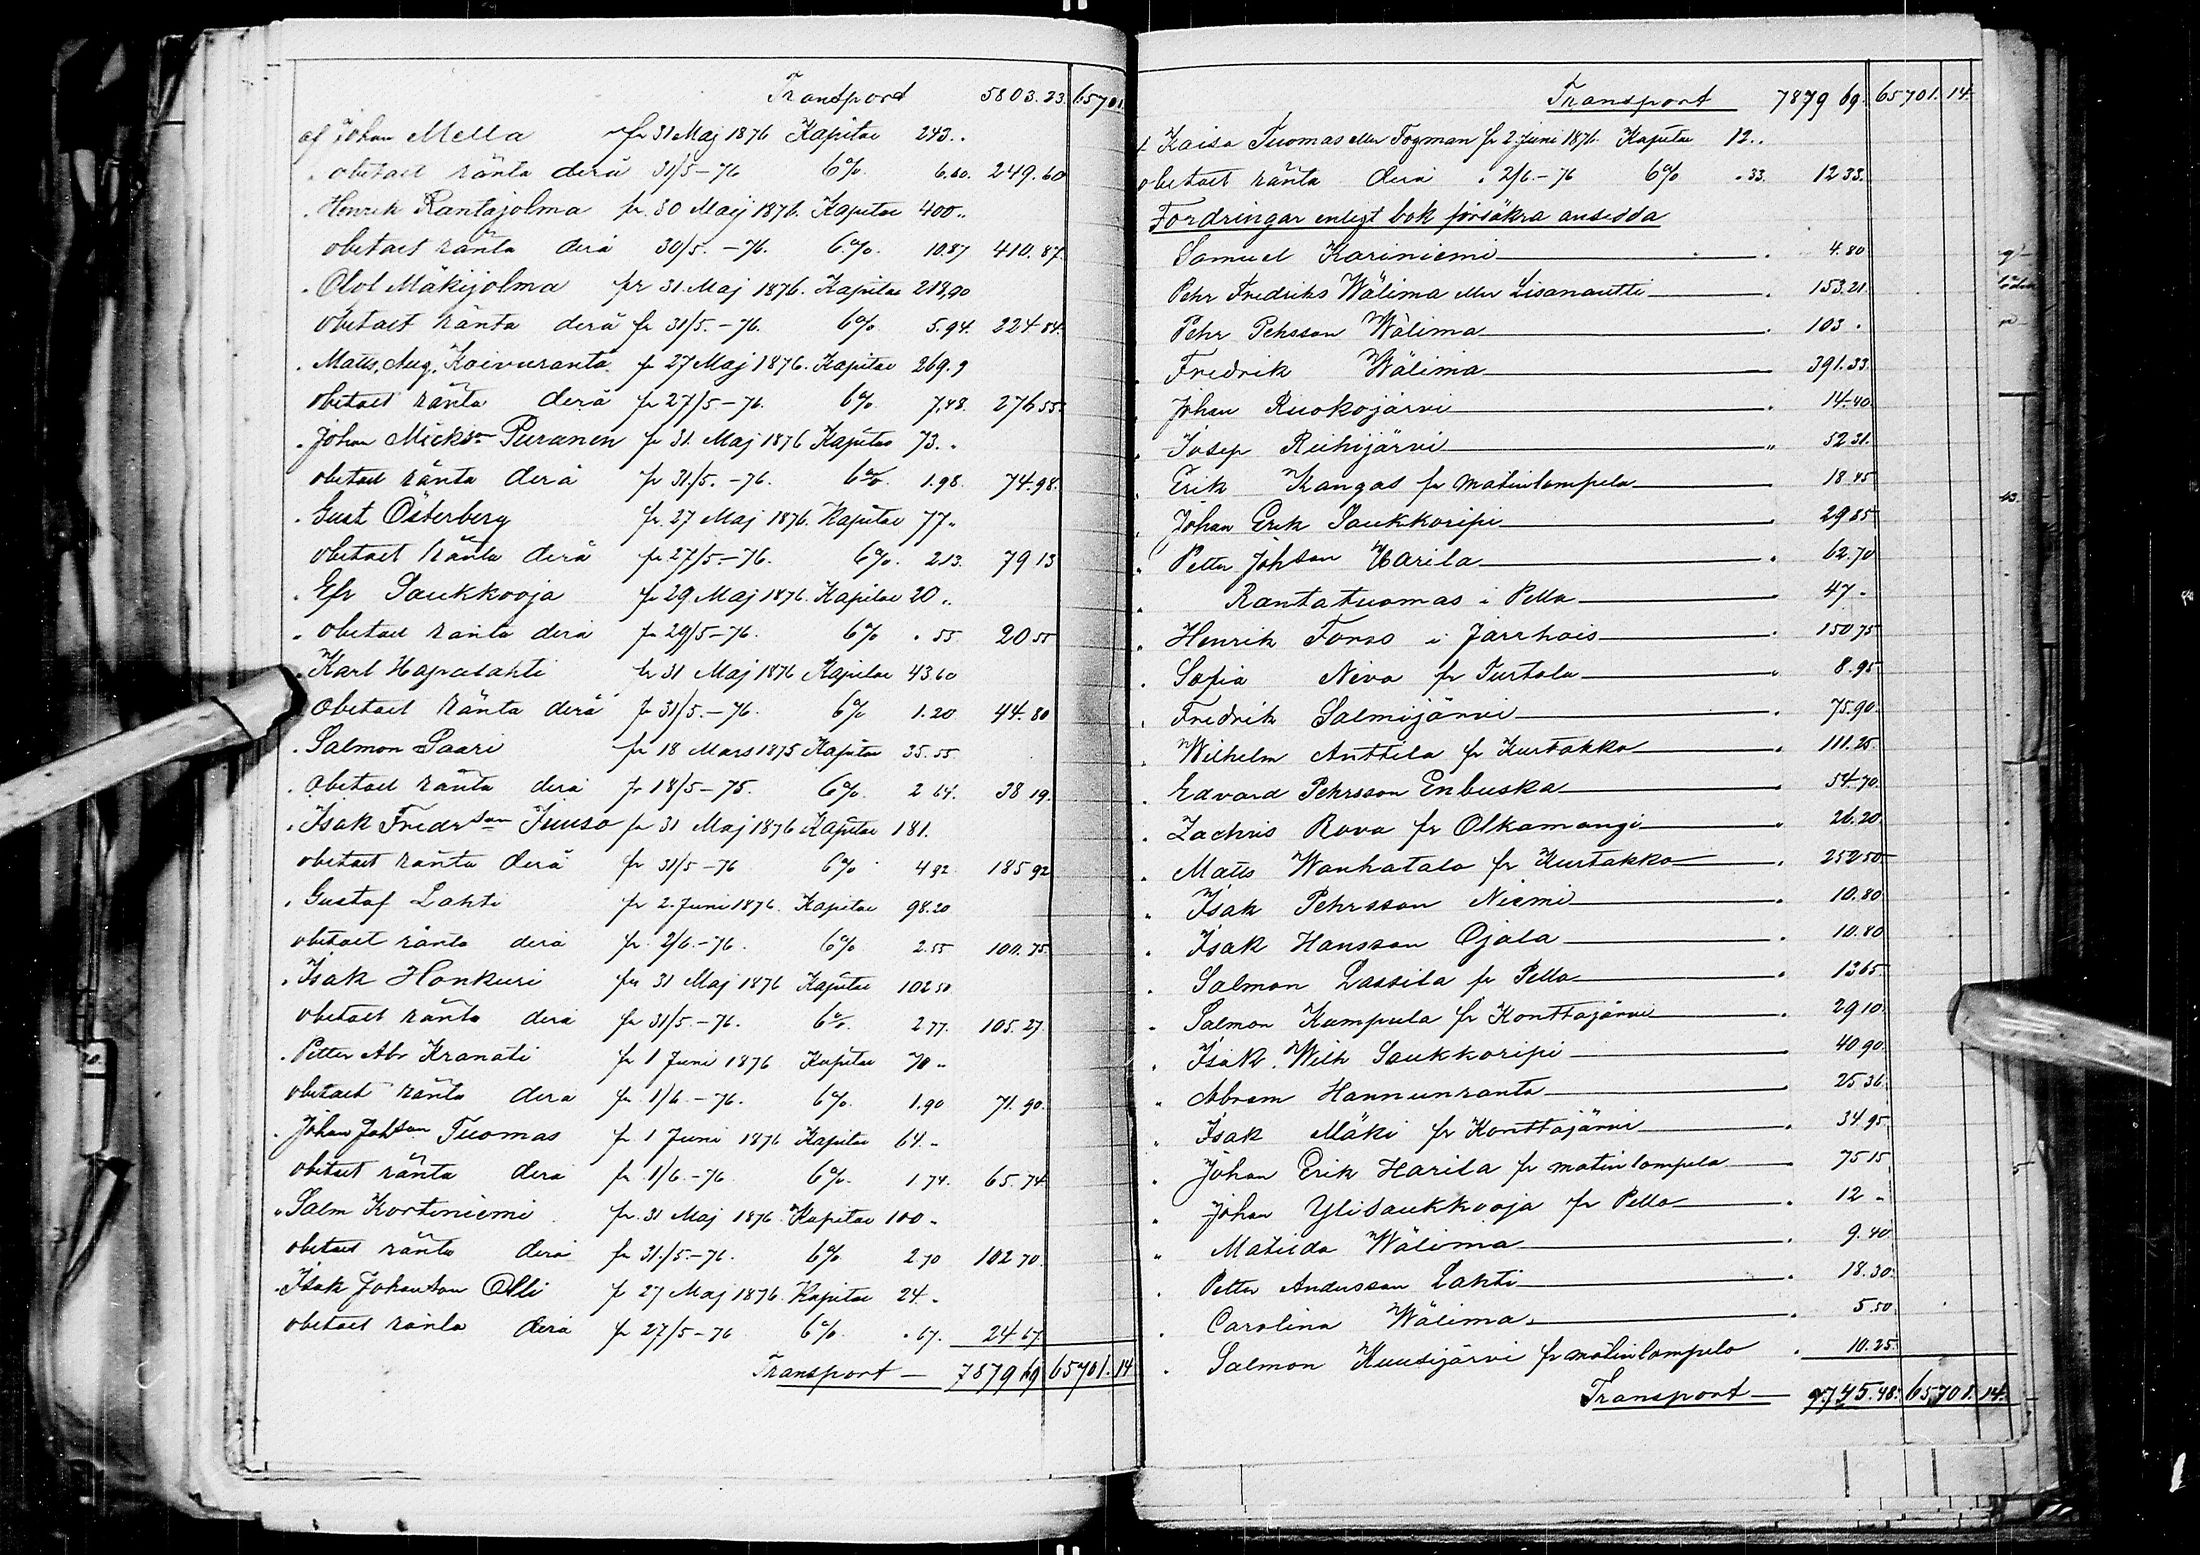 Transport 5803.23. 65701.
af Johan Mella fr 31 Maj 1876 Kapital 243..
. obetalt ränta derå 31/5-76 6% 6.60. 249.60
. Henrik Rantajolma fr. 30 Maij 1876. Kapital 400..
obetalt ränta derå 30/5.-76. 6.%. 10.87 410.87.
. Olof Mäkijolma fr 31. Maj 1876. Kapital 218,90
obetalt ränta derå fr 31/5.-76. 6% 5.94. 224.84.
. Matts. Aug. Koivuranta. fr 27 Maj 1876. Kapital 269.9
obetalt ränta derå fr 27/5-76. 6% 7.48. 276.55.
. Johan Micksn Puranen fr 31. Maj 1876 Kapital 73..
obetalt ränta derå fr 31/5.-76. 6%. 1.98. 74.98.
. Gust Österberg fr. 27 Maj 1876. Kapital 77..
obetalt ränta derå fr 27/5.-76. 6%. 2.13. 79 13
. Efr Saukkooja fr 29 Maj 1876. Kapital 20..
. obetalt ränta derå fr 29/5-76. 6% . 55 20 55
. Karl Hapalahti fr 31 Maj 1876 Kapital 43 60
. obetalt ränta derå fr 31/5.-76. 6% 1.20 44.80
. Salmon Saari fr 18 Mars 1875 Kapital 35.55
. obetalt ränta derå fr 18/5-75. 6%. 2 64. 38 19.
. Isak Fredrson Juuso fr 31 Maj 1876 Kapital 181.
obetalt ränta derå fr 31/5-76 6% 4 92 185 92
. Gustaf Lahti fr 2. Juni 1876. Kapital 98.20
obetalt ränta derå fr. 2/6.-76. 6% 2.55 100.75.
. Isak Honkuri fr 31 Maj 1876 Kapital 102 50
obetalt ränta derå fr 31/5.-76. 6%. 2.77. 105.27.
. Petter Abr Kranati fr 1 Juni 1876 Kapital 70..
obetalt ränta derå fr. 1/6.-76. 6%. 1.90 71.90.
. Johan Johson Tuomas fr. 1 Juni 1876 Kapital 64.-
obetalt ränta derå fr 1/6.-76 6%. 1 74. 65.74.
. Salm Kortiniemi fr. 31 Maj 1876. Kapital 100-
obetalt ränta derå fr 31./5.-76. 6% 2.70 102 70.
. Isak Johanson Olli fr 27 Maj 1876. Kapital 24.-
obetalt ränta derå fr 27/5-76 6%. .67. 24 67.
Transport - 7879 69 65701.14
Transport 7879 69. 65701. 14.
Kaisa Tuomas eller Fogman fr 2 Juni 1876. Kapital 12..
obetalt ränta derå . 2/6.-76 6% .33. 12 33.
Fordringar enligt bok försäkra ansedda
Samuel Kariniemi . 4.80
Pehr Fredriks Wälimä eller Lisanantti . 153.21.
Pehr Pehsson Wälima . 103 .
Fredrik Wälima 391.33.
Johan Ruokojärvi . 14.40
Josep Reihijärvi " 52 31.
Erik Kangas fr matinlompolo 18 45
Johan Erik Saukkoripi . 29 85
Petter Johson Harila . 62.70
. Rantatuomas i Pello . 47 -
. Henrik Forss i Jarrhois . 150 75
. Sofia Niva fr Turtola " 8.95
. Fredrik Salmijärvi . 75.90.
. Wilhelm Anttila fr Kurtakko . 111.25
. Edvard Pehrsson Enbuska . 54.70
. Zachris Rova fr Olkamangi . 26.20
. Matts Wanhatalo fr Kurtakko . 252 50
. Isak Pehrsson Niemi . 10.80
. Isak Hansson Ojala . 10.80
. Salmon Lassila fr Pello . 13 65
. Salmon Kumpula fr Konttajärvi . 29 10
. Isak Wilh Saukkoripi . 40 90
. Abram Hannunranta . 25 36
. Isak Mäki fr Konttajärvi . 34.95
. Johan Erik Harila fr matinlompolo . 75 15
. Johan Ylisaukkooja fr Pello . 12 -
" Matilda Wälima . 9.40
. Petter Andersson Lahti . 18.30
. Carolina Wälima . 5.50
. Salmon Kuusijärvi fr matinlompolo . 10.25
Transport - 9.745.48. 65,701. 14.